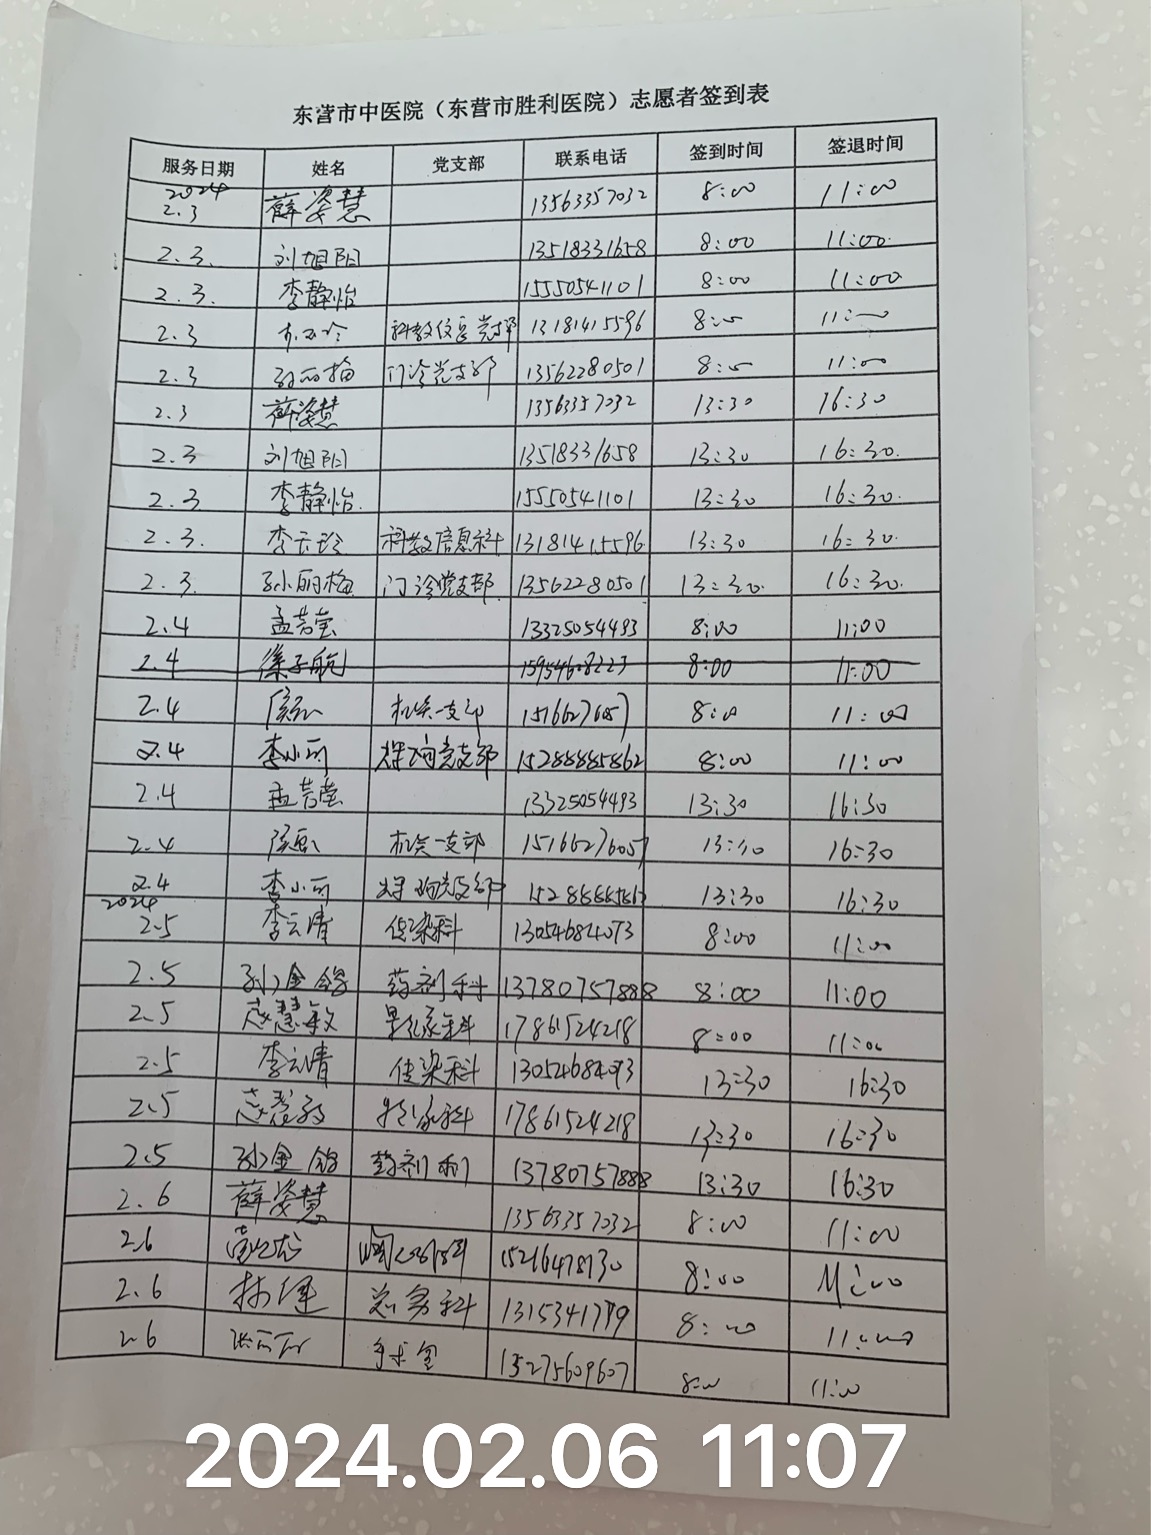 东营市中医院（东营市胜利医院）志愿者签到表
服务日期 姓名 党支部 联系电话 签到时间 签退时间
2024 2.3 薛姿慧 13563357032 8:00 11:00
2.3. 刘旭阳 13518331658 8:00 11:00
2.3. 李静怡 15550541101 8:00 11:00
2.3 13181415596 8:00 11:00
2.3 孙丽梅 门诊党支部 13562280501 8:00 11:00
2.3 薛姿慧 13563357032 13:30 16:30
2.3 刘旭阳 13518331658 13:30 16:30.
2.3 李静怡. 15550541101 13:30 16:30.
2.3. 李云玲 科教信息科 13181415596 13:30 16:30.
2.3. 孙丽梅 门诊党支部 13562280501 13:30. 16:30.
2.4 孟芳莹 13325054493 8:00 11:00
2.4 8:00 11:00
2.4 机关一支部 15166276057 8:00 11:00
2.4 李小可 15288885862 8:00 11:00
2.4 孟芳莹 13325054493 13:30 16:30
2.4 机关一支部 15166276057 13:30 16:30
2.4 李小可 13:30 16:30
2024 2.5 李云清 传染科 13054684073 8:00 11:00
2.5 孙金鸽 药剂科 13780757888 8:00 11:00
2.5 17861524218 8:00 11:00
2.5 李云清 传染科 13054684073 13:30 16:30
2.5 17861524218 13:30 16:30
2.5 孙金鸽 药剂科 13780757888 13:30 16:30
2.6 薛姿慧 13563357032 8:00 11:00
2.6 15216478730 8:00 11:00
2.6 林健 总务科 8:00 11:00
2.6 手术室 15275609607 8:00 11:00
2024.02.06 11:07